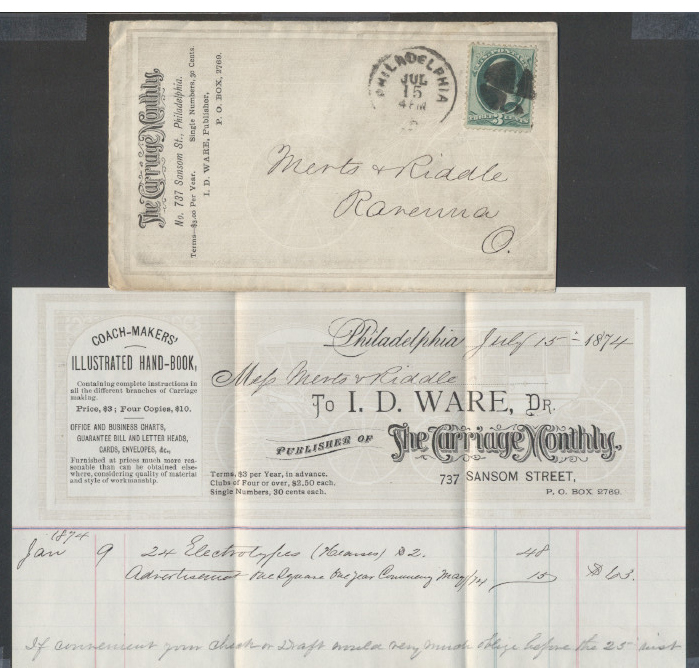 The Carriage Monthly,
No. 737 Sansom St., Philadelphia.
Terms—$3.00 Per Year. Single Numbers, 30 Cents.
I. D. WARE, Publisher,
P. O. BOX, 2769.
PHILADELPHIA
JUL
15
4 PM
3 CENTS
Merts & Riddle
Ravenna
O.
COACH-MAKERS'
ILLUSTRATED HAND-BOOK,
Containing complete instructions in
all the different branches of Carriage
making.
Price, $3; Four Copies, $10.
OFFICE AND BUSINESS CHARTS,
GUARANTEE BILL AND LETTER HEADS,
CARDS, ENVELOPES, &c.,
Furnished at prices much more rea-
sonable than can be obtained else-
where, considering quality of material
and style of workmanship.
Philadelphia July 15 1874
Mess Merts & Riddle
To I. D. WARE, DR.
PUBLISHER OF The Carriage Monthly,
737 SANSOM STREET,
P. O. BOX 2769.
Terms, $3 per Year, in advance.
Clubs of Four or over, $2.50 each.
Single Numbers, 30 cents each.
1874
Jan 9 24 Electrotypes (Hearses) $2. 48
Advertisement One Square One Year Commencing May/74 15 $63.
If convenient your check or Draft would very much oblige before the 25 inst